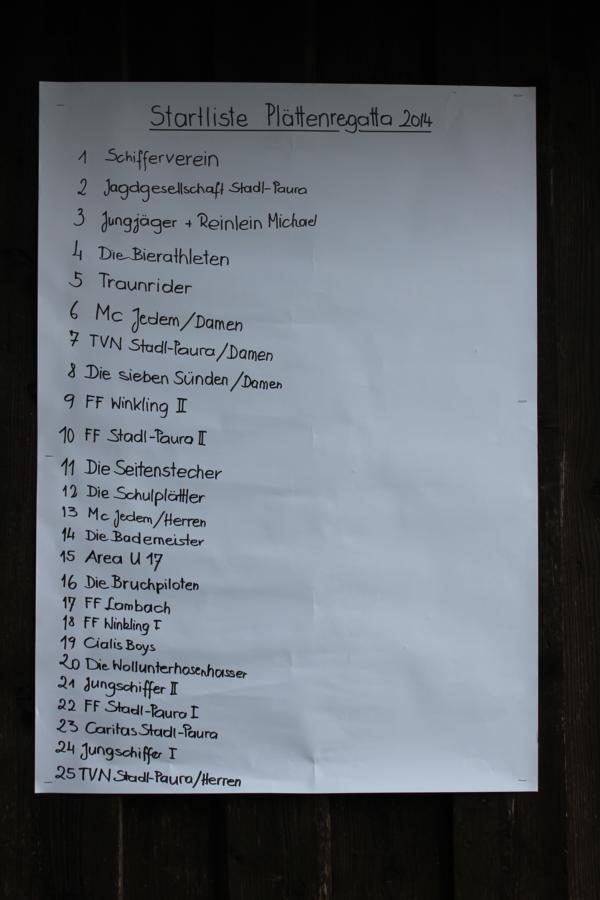 Startliste Plättenregatta 2014
1 Schifferverein
2 Jagdgesellschaft Stadl-Paura
3 Jungjäger + Reinlein Michael
4 Die Bierathleten
5 Traunrider
6 Mc Jedem/Damen
7 TVN Stadl-Paura/Damen
8 Die sieben Sünden/Damen
9 FF Winkling II
10 FF Stadl-Paura II
11 Die Seitenstecher
12 Die Schulplöttler
13 Mc Jedem/Herren
14 Die Bademeister
15 Area U 17
16 Die Bruchpiloten
17 FF Lambach
18 FF Winkling I
19 Cialis Boys
20 Die Wollunterhosenhasser
21 Jungschiffer II
22 FF Stadl-Paura I
23 Caritas Stadl-Paura
24 Jungschiffer I
25 TVN Stadl-Paura/Herren